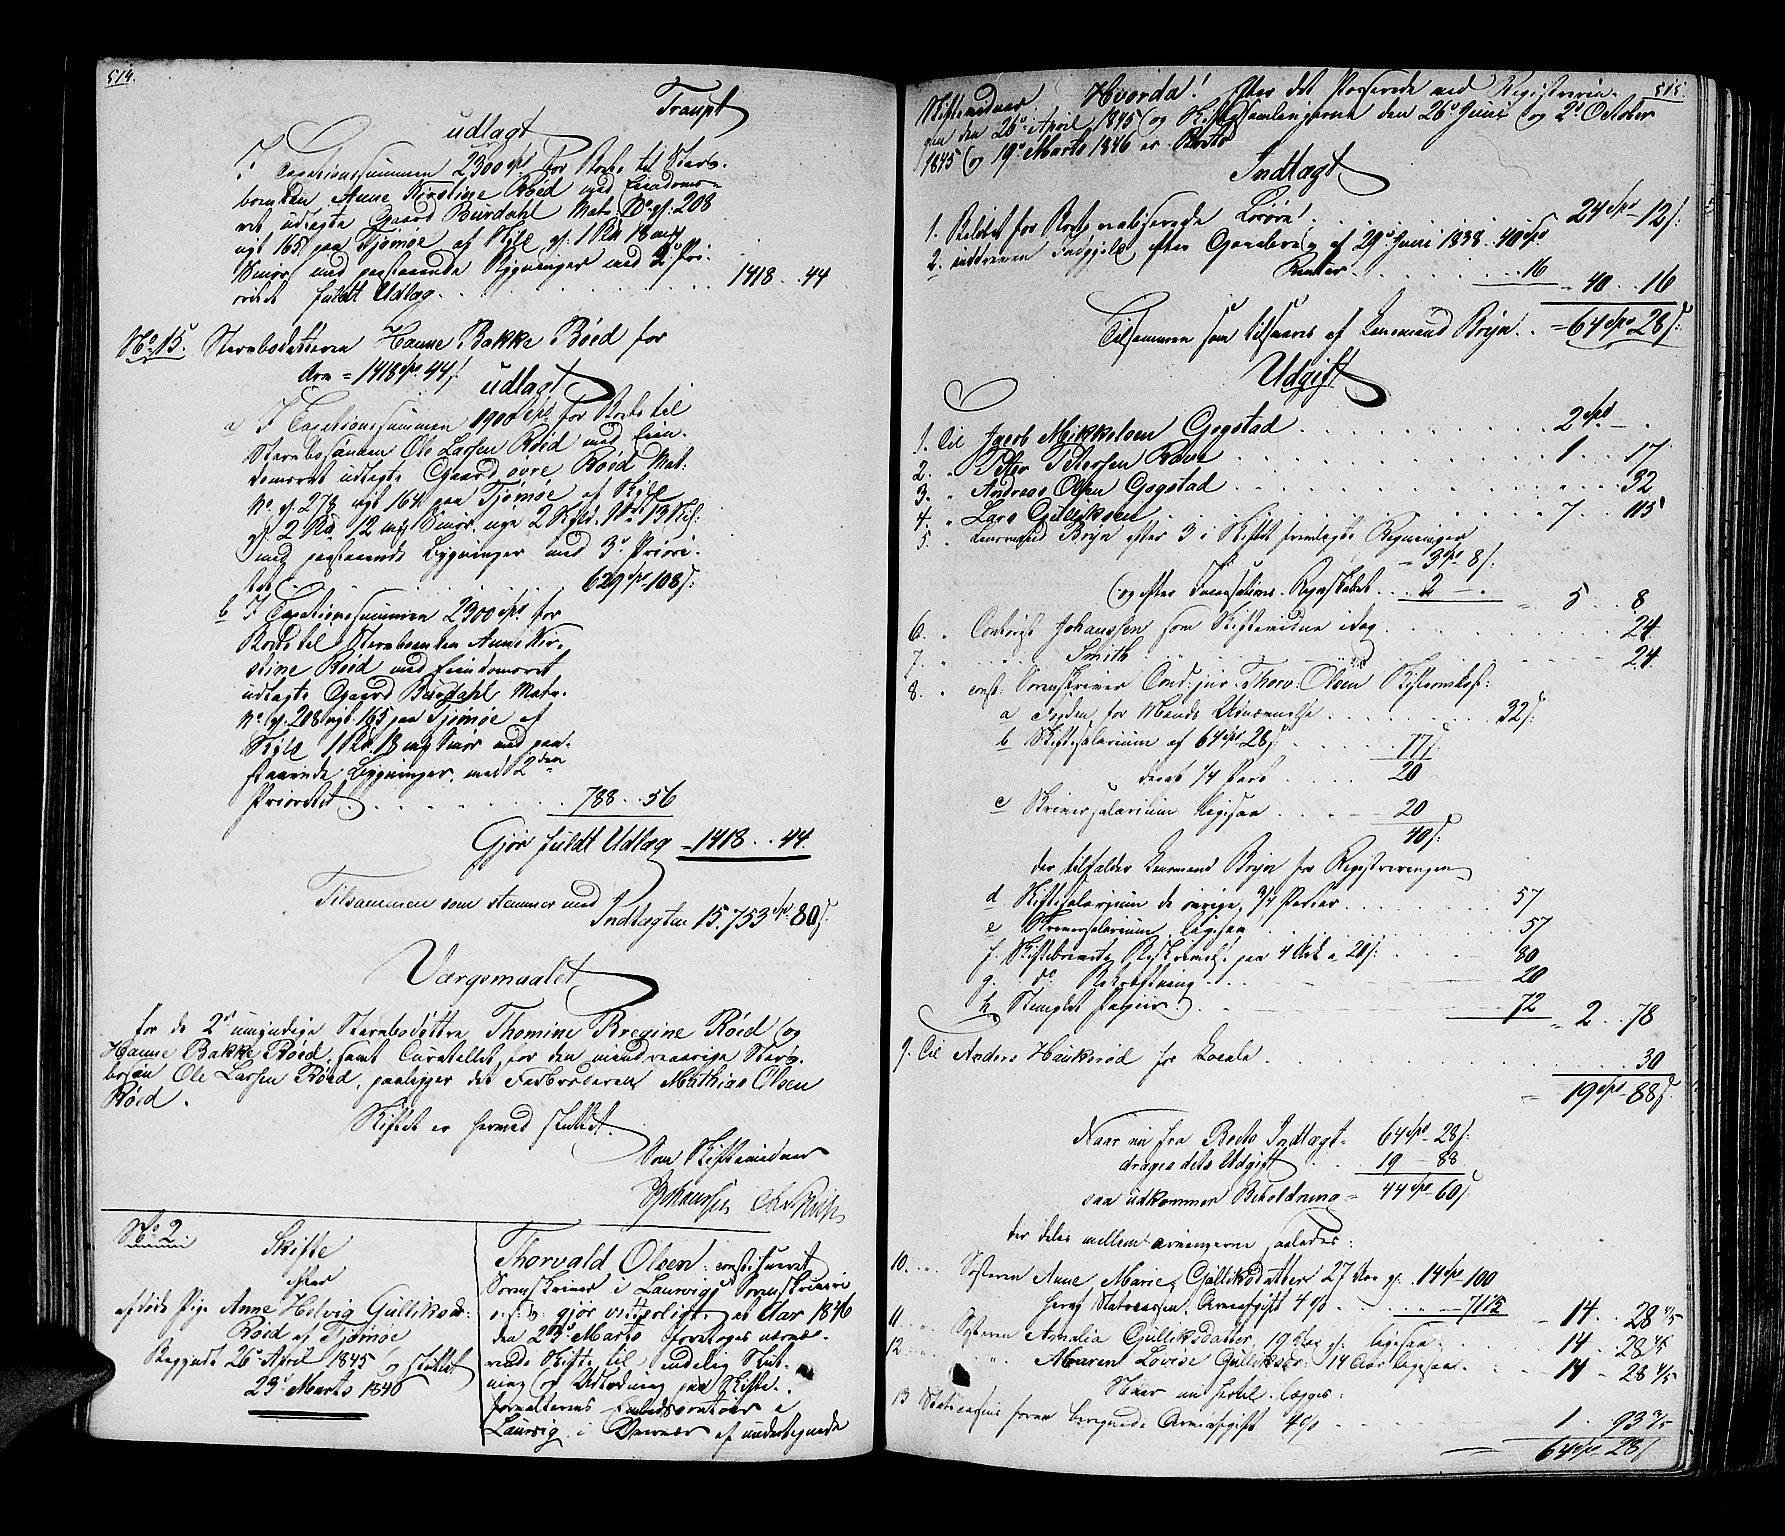 514.
Transpt
udlagt
I Taxtionssummen 2300 spd for Bords til Sterb-
boenken Anne Kirstine Röed med Eiendoms-
ret udlagte Gaard Burdahl Mats: No gl. 208
nyt 165 paa Tjømøe af Skyld gl: 1 Rd 18 mk
Smör med paastaaende Bygninger med 2den Pri-
oritet fuldt Udlag . . . 1418 . . 44
No. 15. Sterbodatteren Hanne Bakke Röed for
Arv = 1418 spd 44 s.
udlagt
a I Taxtionssummen 1900 spd for Bords til
Sterbosönnen Ole Larsen Röed med Eien-
domsret udlagte Gaard övre Röed Mat:
No. gl. 278 nyt 164 paa Tjømøe af Skyld
gl. 2 Rd. 12 mk Smör, nye 2 Skyld. 1 ort 13 Skil:
med paastaaende Bygninger med 3de Priori-
tet . . . 629 spd 108 s.
b I Taxtionssummen 2300 spd for
Bords til Sterbenken Anne Kir-
stine Röed med Eiendomsret
udlagte Gaard Burdahl Matr.
No. gl. 208 nyt 165 paa Tjømøe af
Skyld 1 Rd. 18 mk Smör med paa-
staaende Bygninger, med 2den
Prioritet . . . 788 . . 56
Gjör fuldt Udlag = 1418 . . 44.
Tilsammen som stemmer med
Indtægten 15.753 spd 80 s.
Værgemaalet
for de 2de umyndige Sterbodöttre Thomine Bregine Röed og
Hanne Bakke Röed, samt Curatellet for den mindreaarige Sterb-
bosön Ole Larsen Röed, paaligger det Farbroderen Mathias Olsen
Röed.
Skiftet er hermed sluttet.
Som Skiftevidner
Johanssen
No. 2
Skifte
efter
afdöde Pige Anne Helvig Gulliksdr:
Röed af Tjømøe
Begyndt 26de April 1845 og sluttet
23de Marts 1846
Thorvald Olsen, constitueret
Sorenskriver i Laurvigs Sorenskriveri
gjör vitterligt, at Aar 1846
den 23de Marts foretoges nærvæ-
rende Skifte til endelig Slut-
ning og Udlodning paa Skifte-
forvalterens Embedscontoir i
Laurvig, i Overvær af undertegnede
515.
Skiftevidner. Hvorda! Efter det Passerede ved Registrerin-
gen den 26de April 1845 og Skiftesamlingerne den 26de Juni og 2de October
1845 og 19de Marts 1846 er Boets
Indtægt
1. Belöbet for Boets realiserede Lösöre . . . 24 spd 12 s.
2. inddreven Indgjeld efter Gjeldsbrev af 29de Juni 1838 . 40 spd
Renter . . . 16
40 . . 16
Tilsammen som tilsvares af Lensmand Bryn . . = 64 spd 28 s.
Udgift
1. Til Jacob Mikkelsen Gogstad . . . 2 spd - .
2. " Peder Petersen Rave . . . 1 . . 17
3. " Andreas Olsen Gogstad . . . 32
4. " Lars Gulliksen . . . 7 . . 115
5. " Lensmand Bryn efter 3 i Skiftet fremlagte Regninger
= 3 spd 8 s.
og efter Incassations Regnskabet . . 2 - .
5 . . 8
6. " Contorist Johanssen som Skiftevidne idag . . . 24
7. " " Smith " " . . . 24
8. " const: Sorenskriver Cand: jur: Thorv: Olsen Skifteomkost:
a Forden for Mænds Udnævnelse . . . 32 s.
b Skiftesalarium af 64 spd 28 s. . . . 77 s.
deraf 1/4 Part . . . 20
c Skriversalarium ligesaa . . . 20
40 s.
der tilfalder Lensmand Bryn for Registreringen
d Skiftesalarium de övrige 3/4 Parter . . . 57
e Skriversalarium ligesaa . . . 57
f. Skiftebrevets Beskrivels: paa 4 Ark a 20 s. . . . 80
g. do Bekræftning . . . 20
h Stemplet Papiir . . . 72
2 . . 78
9. Til Anders Haukeröd for Locale . . . 30
= 19 spd 88 s.
Naar nu fra Boets Indtægt = 64 spd 28 s.
drages dets Udgift . . 19 - 88
saa udkommer Beholdning = 44 spd 60 s.
der deles mellem Arvingerne saaledes:
10. " Sösteren Anne Marie Gulliksdatter 27 Aar gl. 14 spd 100
heraf Statscassens Arveafgift 4 % . . . 71 1/5
14 . . 28 4/5
11 " Sösteren Amalia Gulliksdatter 19 Aar gl. ligesaa . . . 14 . . 28 4/5
12 " " Maren Lovise Gulliksdr: 14 Aar ligesaa . . . 14 - 28 4/5
Naar nu hertil lægges:
13 Statscassens foran beregnede Arveafgift 4 % . . . 1 . 93 3/5
= 64 spd 28 s